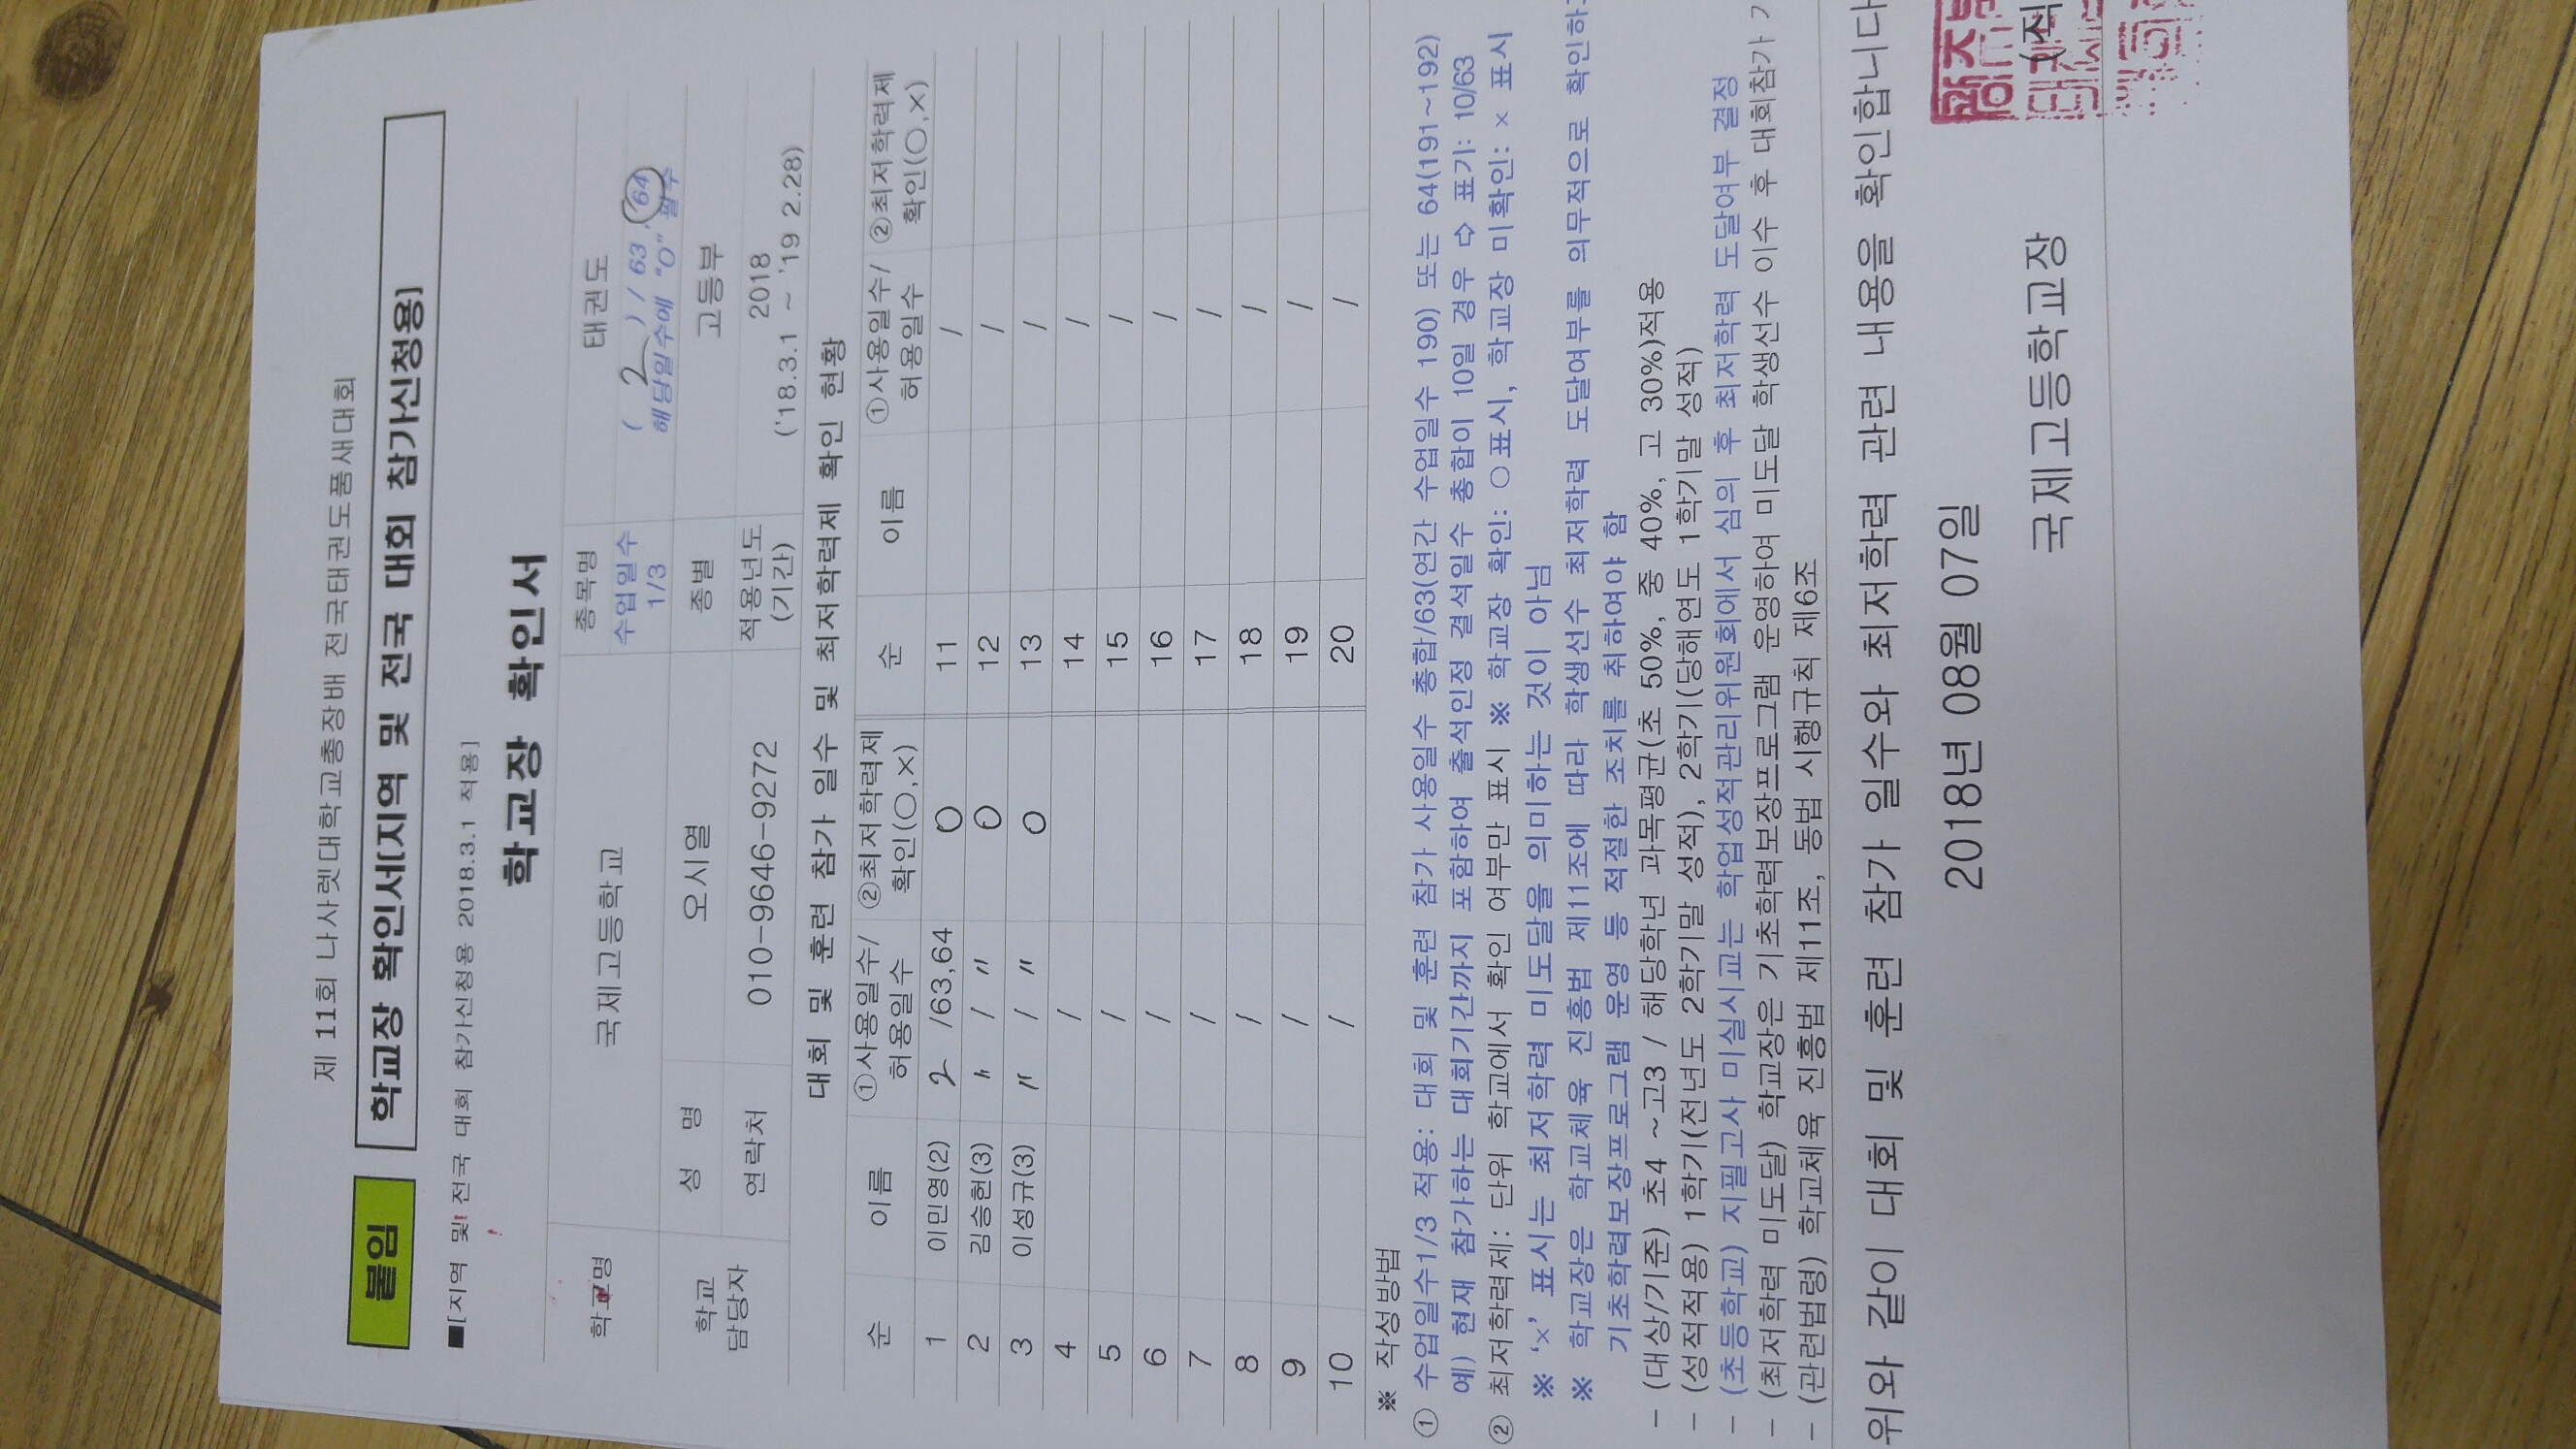 제 11회 나사렛대학교총장배 전국태권도품새대회
붙임 학교장 확인서[지역 및 전국 대회 참가신청용]
■[지역 및 전국 대회 참가신청용 2018.3.1 적용]
학교장 확인서
학교명 국제고등학교 종목명 태권도
수업일수 1/3 ( 2 ) / 63, 64
해당일수에 "O" 필수
학교 담당자 성 명 오시열 종별 고등부
연락처 010-9646-9272 적용년도 (기간) 2018
('18.3.1 ~ '19 2.28)
대회 및 훈련 참가 일수 및 최저학력제 확인 현황
순 이름 ①사용일수/허용일수 ②최저학력제 확인(○,×) 순 이름 ①사용일수/허용일수 ②최저학력제 확인(○,×)
1 이민영(2) 2 /63,64 O 11 /
2 김승헌(3) 〃 / 〃 O 12 /
3 이성규(3) 〃 / 〃 O 13 /
4 / 14 /
5 / 15 /
6 / 16 /
7 / 17 /
8 / 18 /
9 / 19 /
10 / 20 /
※ 작성방법
① 수업일수1/3 적용: 대회 및 훈련 참가 사용일수 총합/63(연간 수업일수 190) 또는 64(191~192)
예) 현재 참가하는 대회기간까지 포함하여 출석인정 결석일수 총합이 10일 경우 ⇨ 표기: 10/63
② 최저학력제: 단위 학교에서 확인 여부만 표시 ※ 학교장 확인: ○표시, 학교장 미확인: × 표시
※ '×' 표시는 최저학력 미도달을 의미하는 것이 아님
※ 학교장은 학교체육 진흥법 제11조에 따라 학생선수 최저학력 도달여부를 의무적으로 확인하고
기초학력보장프로그램 운영 등 적절한 조치를 취하여야 함
- (대상/기준) 초4 ~고3 / 해당학년 과목평균(초 50%, 중 40%, 고 30%)적용
- (성적적용) 1학기(전년도 2학기말 성적), 2학기(당해연도 1학기말 성적)
- (초등학교) 지필고사 미실시교는 학업성적관리위원회에서 심의 후 최저학력 도달여부 결정
- (최저학력 미도달) 학교장은 기초학력보장프로그램 운영하여 미도달 학생선수 이수 후 대회참가
- (관련법령) 학교체육 진흥법 제11조, 동법 시행규칙 제6조
위와 같이 대회 및 훈련 참가 일수와 최저학력 관련 내용을 확인합니다
2018년 08월 07일
국제고등학교장 (직